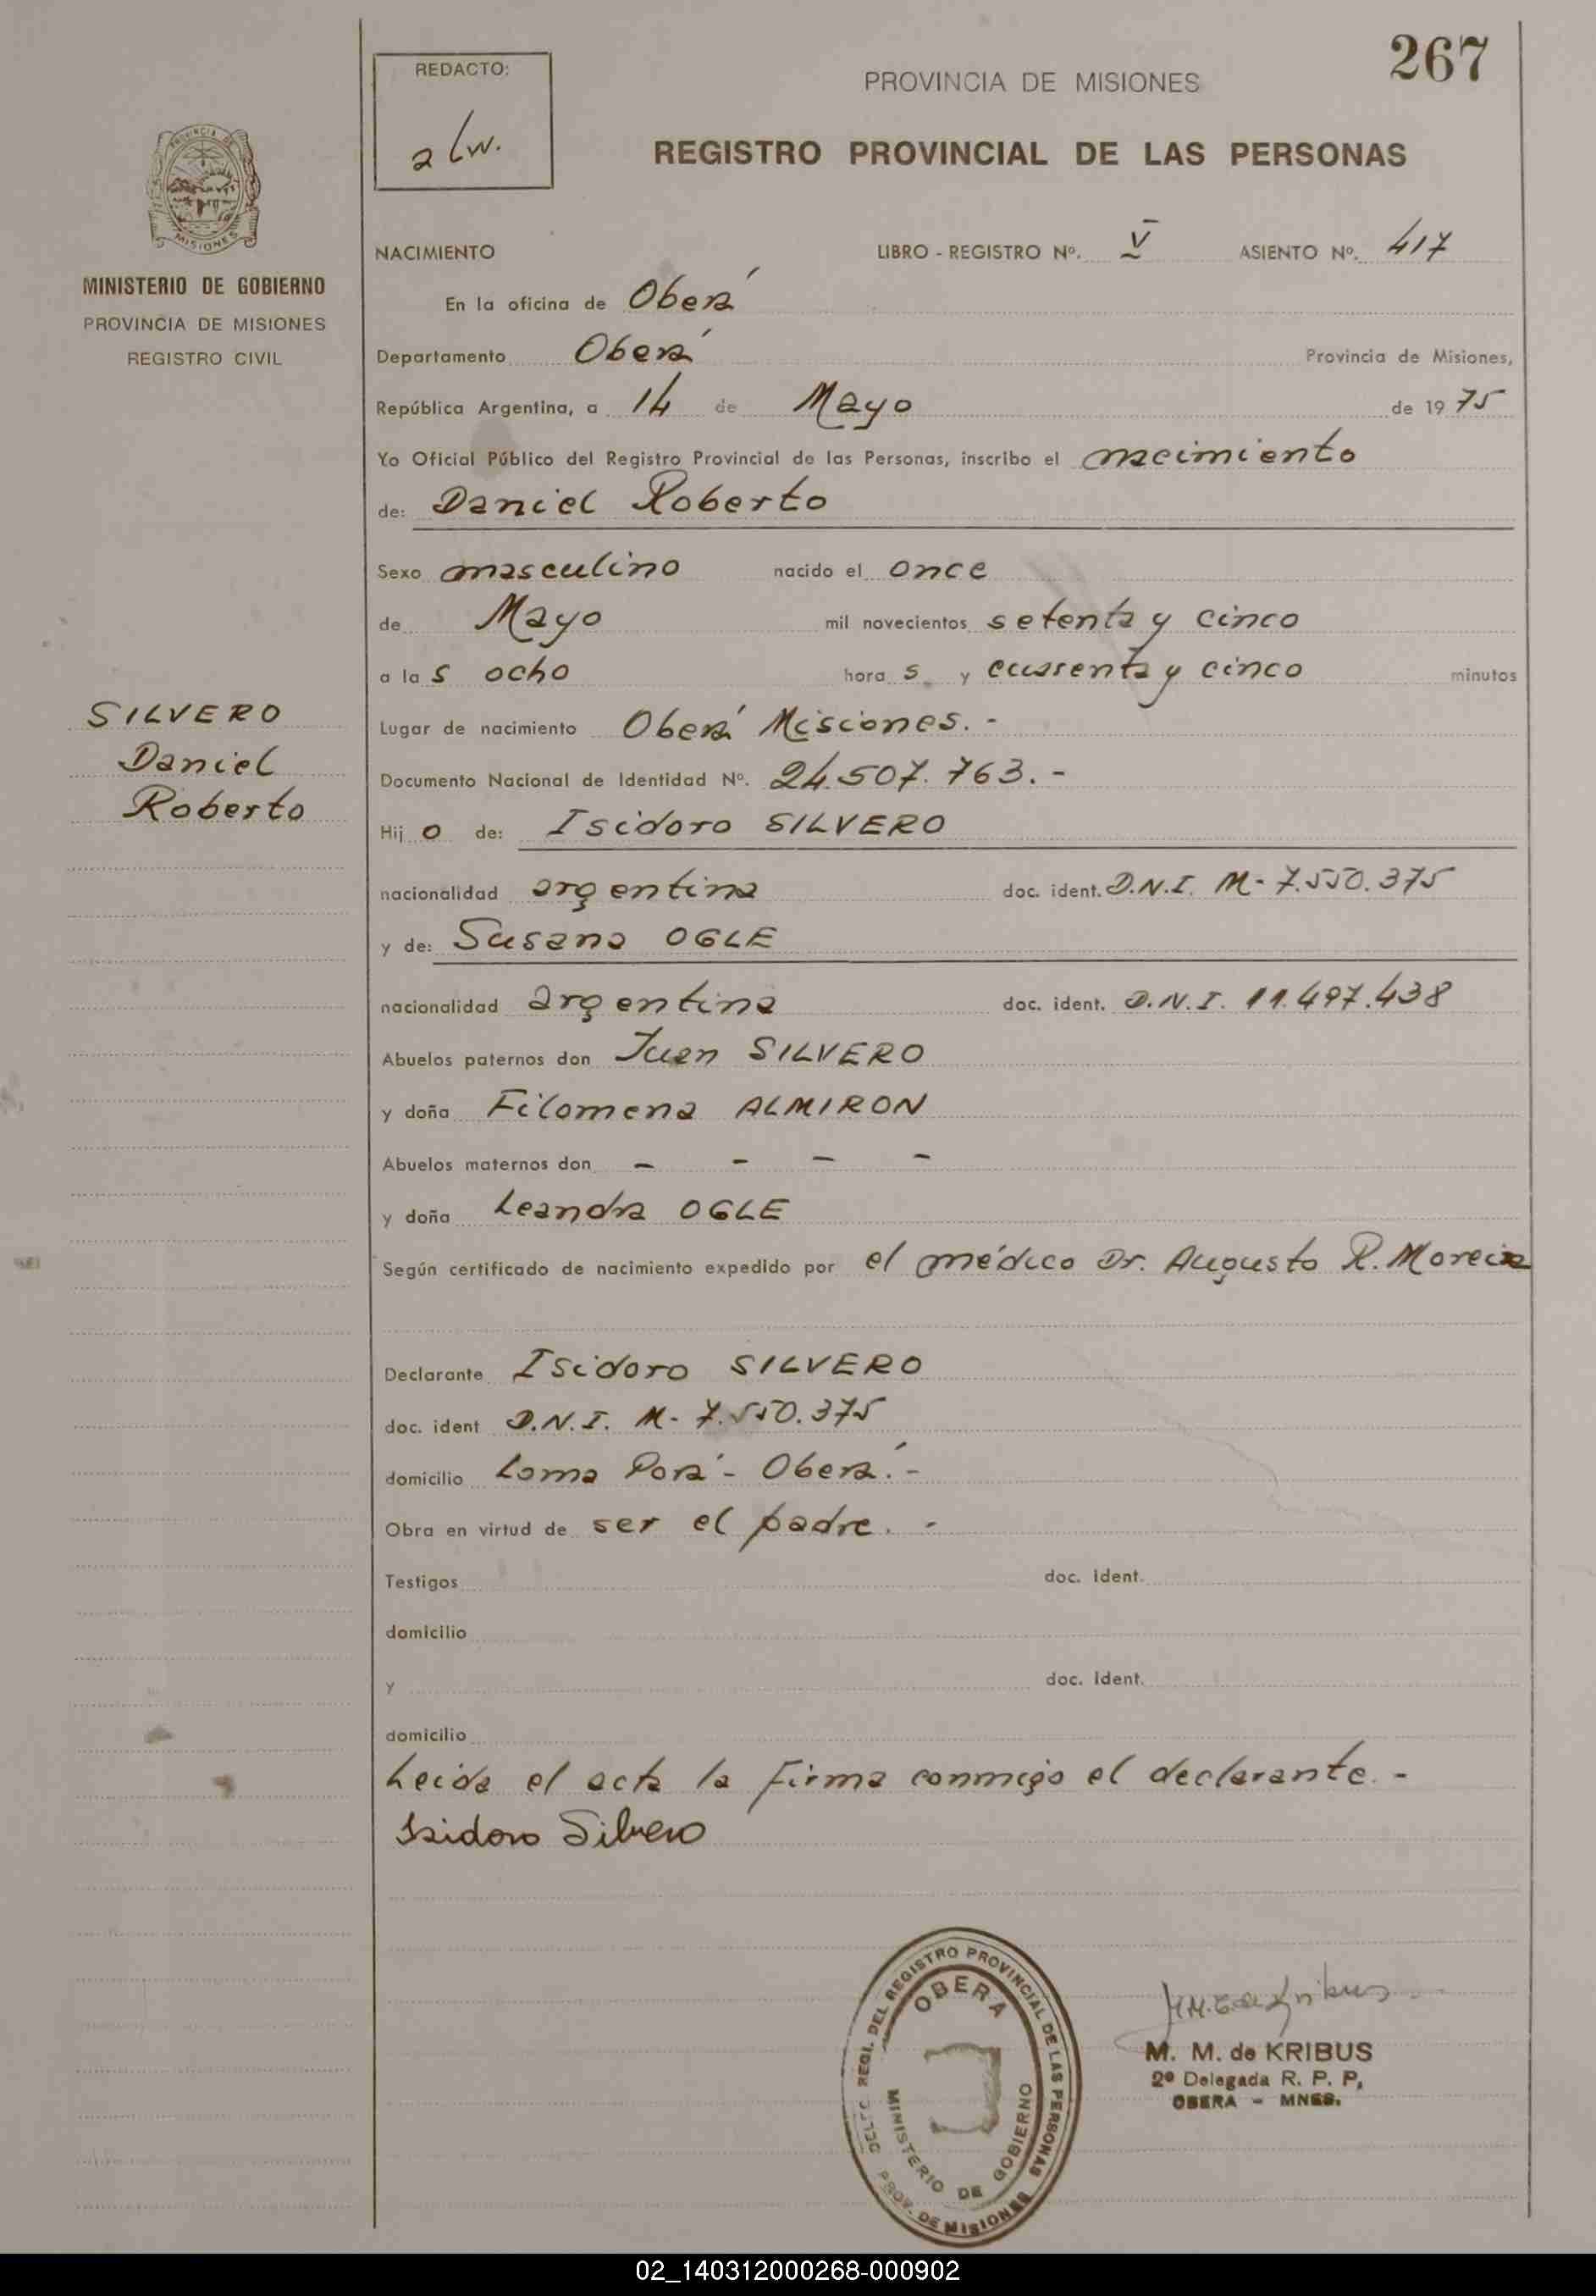 267
REDACTO:
PROVINCIA DE MISIONES
REGISTRO PROVINCIAL DE LAS PERSONAS
MISIONES
MINISTERIO DE GOBIERNO
PROVINCIA DE MISIONES
REGISTRO CIVIL
NACIMIENTO LIBRO - REGISTRO Nº. V ASIENTO Nº. 417
En la oficina de Oberá
Departamento Oberá Provincia de Misiones,
República Argentina, a 14 de Mayo de 1975
Yo Oficial Público del Registro Provincial de las Personas, inscribo el nacimiento
de: Daniel Roberto
Sexo masculino nacido el once
de Mayo mil novecientos setenta y cinco
a las ocho horas y cuarenta y cinco minutos
SILVERO
Daniel
Roberto
Lugar de nacimiento Oberá Misiones.-
Documento Nacional de Identidad Nº. 24.507.763.-
Hijo de: Isidoro SILVERO
nacionalidad argentina doc. ident. D.N.I. M- 7.550.375
y de: Susana OGLE
nacionalidad argentina doc. ident. D.N.I. 11.497.438
Abuelos paternos don Juan SILVERO
y doña Filomena ALMIRON
Abuelos maternos don - - - -
y doña Leandra OGLE
Según certificado de nacimiento expedido por el médico Dr. Augusto R. Moreira
Declarante Isidoro SILVERO
doc. ident D.N.I. M- 7.550.375
domicilio Loma Porá - Oberá.-
Obra en virtud de ser el padre.-
Testigos doc. ident.
domicilio
y doc. ident.
domicilio
Leida el acta la firma conmigo el declarante.-
Isidoro Silvero
REGISTRO PROVINCIAL DE LAS PERSONAS
OBERA
MINISTERIO DE GOBIERNO
PROV. DE MISIONES
M. M. de KRIBUS
2º Delegada R. P. P,
OBERA - MNES.
02_140312000268-000902